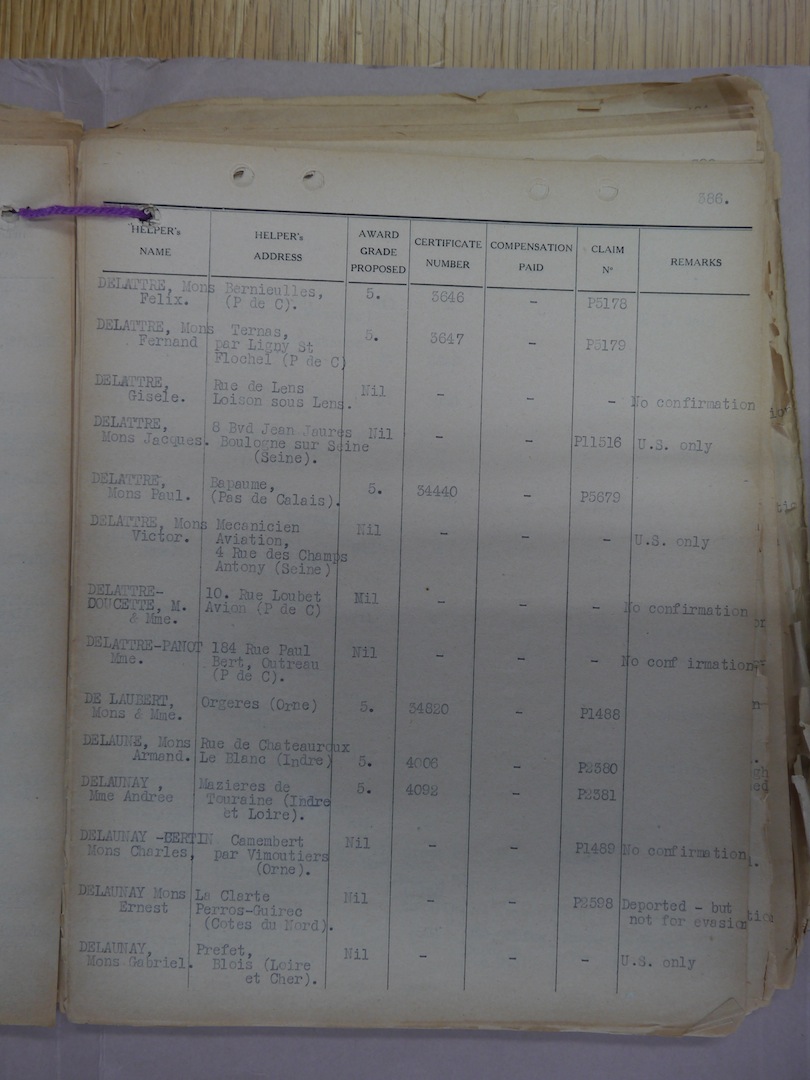 386.
HELPER's NAME | HELPER's ADDRESS | AWARD GRADE PROPOSED | CERTIFICATE NUMBER | COMPENSATION PAID | CLAIM Nº | REMARKS
DELATTRE, Mons Bernieulles,
Felix. (P de C). 5. 3646 - P5178
DELATTRE, Mons Ternas,
Fernand par Ligny St 5. 3647 - P5179
Flochel (P de C)
DELATTRE, Rue de Lens Nil
Gisele. Loison sous Lens. - - - No confirmation
DELATTRE, 8 Bvd Jean Jaures Nil
Mons Jacques. Boulogne sur Seine - - P11516 U.S. only
(Seine).
DELATTRE, Bapaume,
Mons Paul. (Pas de Calais). 5. 34440 - P5679
DELATTRE, Mons Mecanicien Nil
Victor. Aviation, - - - U.S. only
4 Rue des Champs
Antony (Seine)
DELATTRE- 10. Rue Loubet Nil
DOUCETTE, M. Avion (P de C) - - - No confirmation
& Mme.
DELATTRE-PANOT 184 Rue Paul Nil
Mme. Bert, Outreau - - - No conf irmation
(P de C).
DE LAUBERT, Orgeres (Orne) 5. 34820 - P1488
Mons & Mme.
DELAUNE, Mons Rue de Chateauroux
Armand. Le Blanc (Indre) 5. 4006 - P2380
DELAUNAY , Mazieres de 5. 4092 - P2381
Mme Andree Touraine (Indre
et Loire).
DELAUNAY -BERTIN Camembert Nil
Mons Charles, par Vimoutiers - - P1489 No confirmation
(Orne).
DELAUNAY Mons La Clarte Nil
Ernest Perros-Guirec - - P2598 Deported - but
(Cotes du Nord). not for evasion
DELAUNAY, Prefet, Nil
Mons Gabriel. Blois (Loire - - - U.S. only
et Cher).